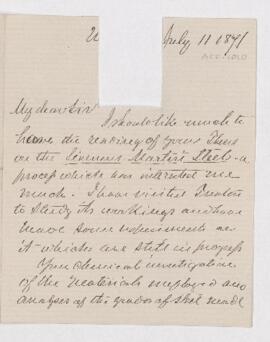 July 11 1871
My dear Sir
I should like much to
have the reading of your Thesis
on the Siemens Martin Steel - a
process which has interested me
much. I have visited Trenton
to study its workings and have
made some upon
it which are still in progress
Your chemical investigation
of the materials employed and
analyses of the grades of steel made